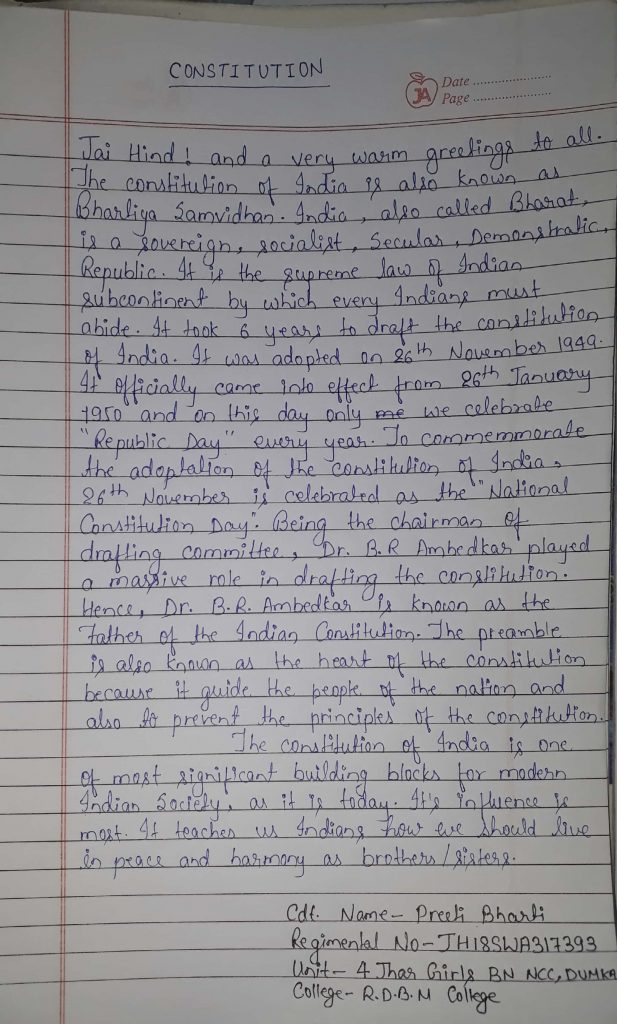 CONSTITUTION
JA
Date ........................
Page ........................
Jai Hind! and a very warm greetings to all.
The constitution of India is also known as
Bhartiya Samvidhan. India, also called Bharat,
is a sovereign, socialist, Secular, Demonstratic,
Republic. It is the supreme law of Indian
subcontinent by which every Indians must
abide. It took 6 years to draft the constitution
of India. It was adopted on 26th November 1949.
It officially came into effect from 26th January
1950 and on this day only me we celebrate
"Republic Day" every year. To commemmorate
the adoptation of the constitution of India,
26th November is celebrated as the "National
Constitution Day". Being the chairman of
drafting committee, Dr. B.R Ambedkar played
a massive role in drafting the constitution.
Hence, Dr. B.R. Ambedkar is known as the
Father of the Indian Constitution. The preamble
is also known as the heart of the constitution
because it guide the people of the nation and
also to prevent the principles of the constitution.
The constitution of India is one
of most significant building blocks for modern
Indian Society, as it is today. It's influence is
most. It teaches us Indians how we should live
in peace and harmony as brothers/sisters.
Cdt. Name- Preeti Bharti
Regimental No-JH18SWA317393
Unit- 4 Jhar Girls BN NCC, DUMKA
College- R.D.B.M College